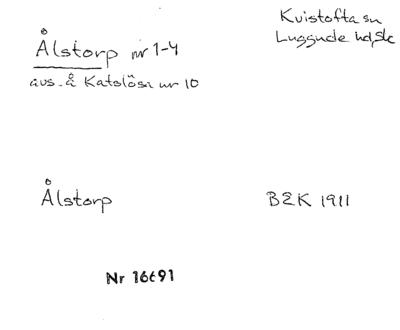 Ålstorp nr 1-4
avs. å Katslösa nr 10
Kvistofta sn
Luggude hd, Sk
Ålstorp
BEK 1911
Nr 16691